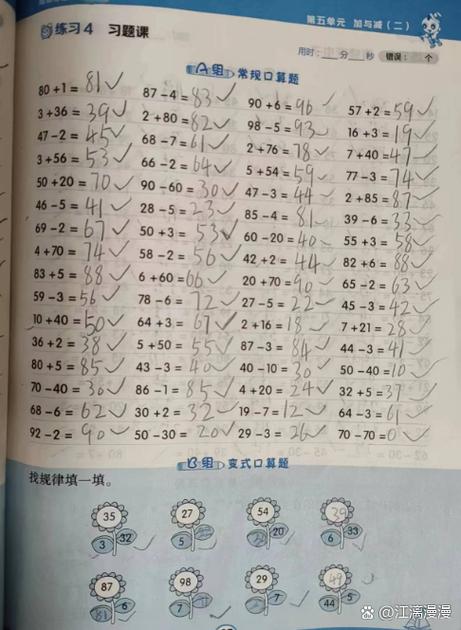 第五单元 加与减（二）
练习4 习题课
用时：__分__秒 错误： 个
A组 常规口算题
80+1=81 87-4=83 90+6=96 57+2=59
3+36=39 2+80=82 98-5=93 16+3=19
47-2=45 68-7=61 2+76=78 7+40=47
3+56=53 66-2=64 5+54=59 77-3=74
50+20=70 90-60=30 47-3=44 2+85=87
46-5=41 28-5=23 85-4=81 39-6=33
69-2=67 50+3=53 60-20=40 55+3=58
4+70=74 58-2=56 42+2=44 82+6=88
83+5=88 6+60=66 20+70=90 65-2=63
59-3=56 78-6=72 27-5=22 45-3=42
10+40=50 64+3=67 2+16=18 7+21=28
36+2=38 5+50=55 87-3=84 44-3=41
80+5=85 43-3=40 40-10=30 50-40=10
70-40=30 86-1=85 4+20=24 32+5=37
68-6=62 30+2=32 19-7=12 64-3=61
92-2=90 50-30=20 29-3=26 70-70=0
B组 变式口算题
找规律填一填。
35 27 54 39
3 32 5 20 6 33
87 98 29 49
81 6 7 7 44 5
@江漓漫漫